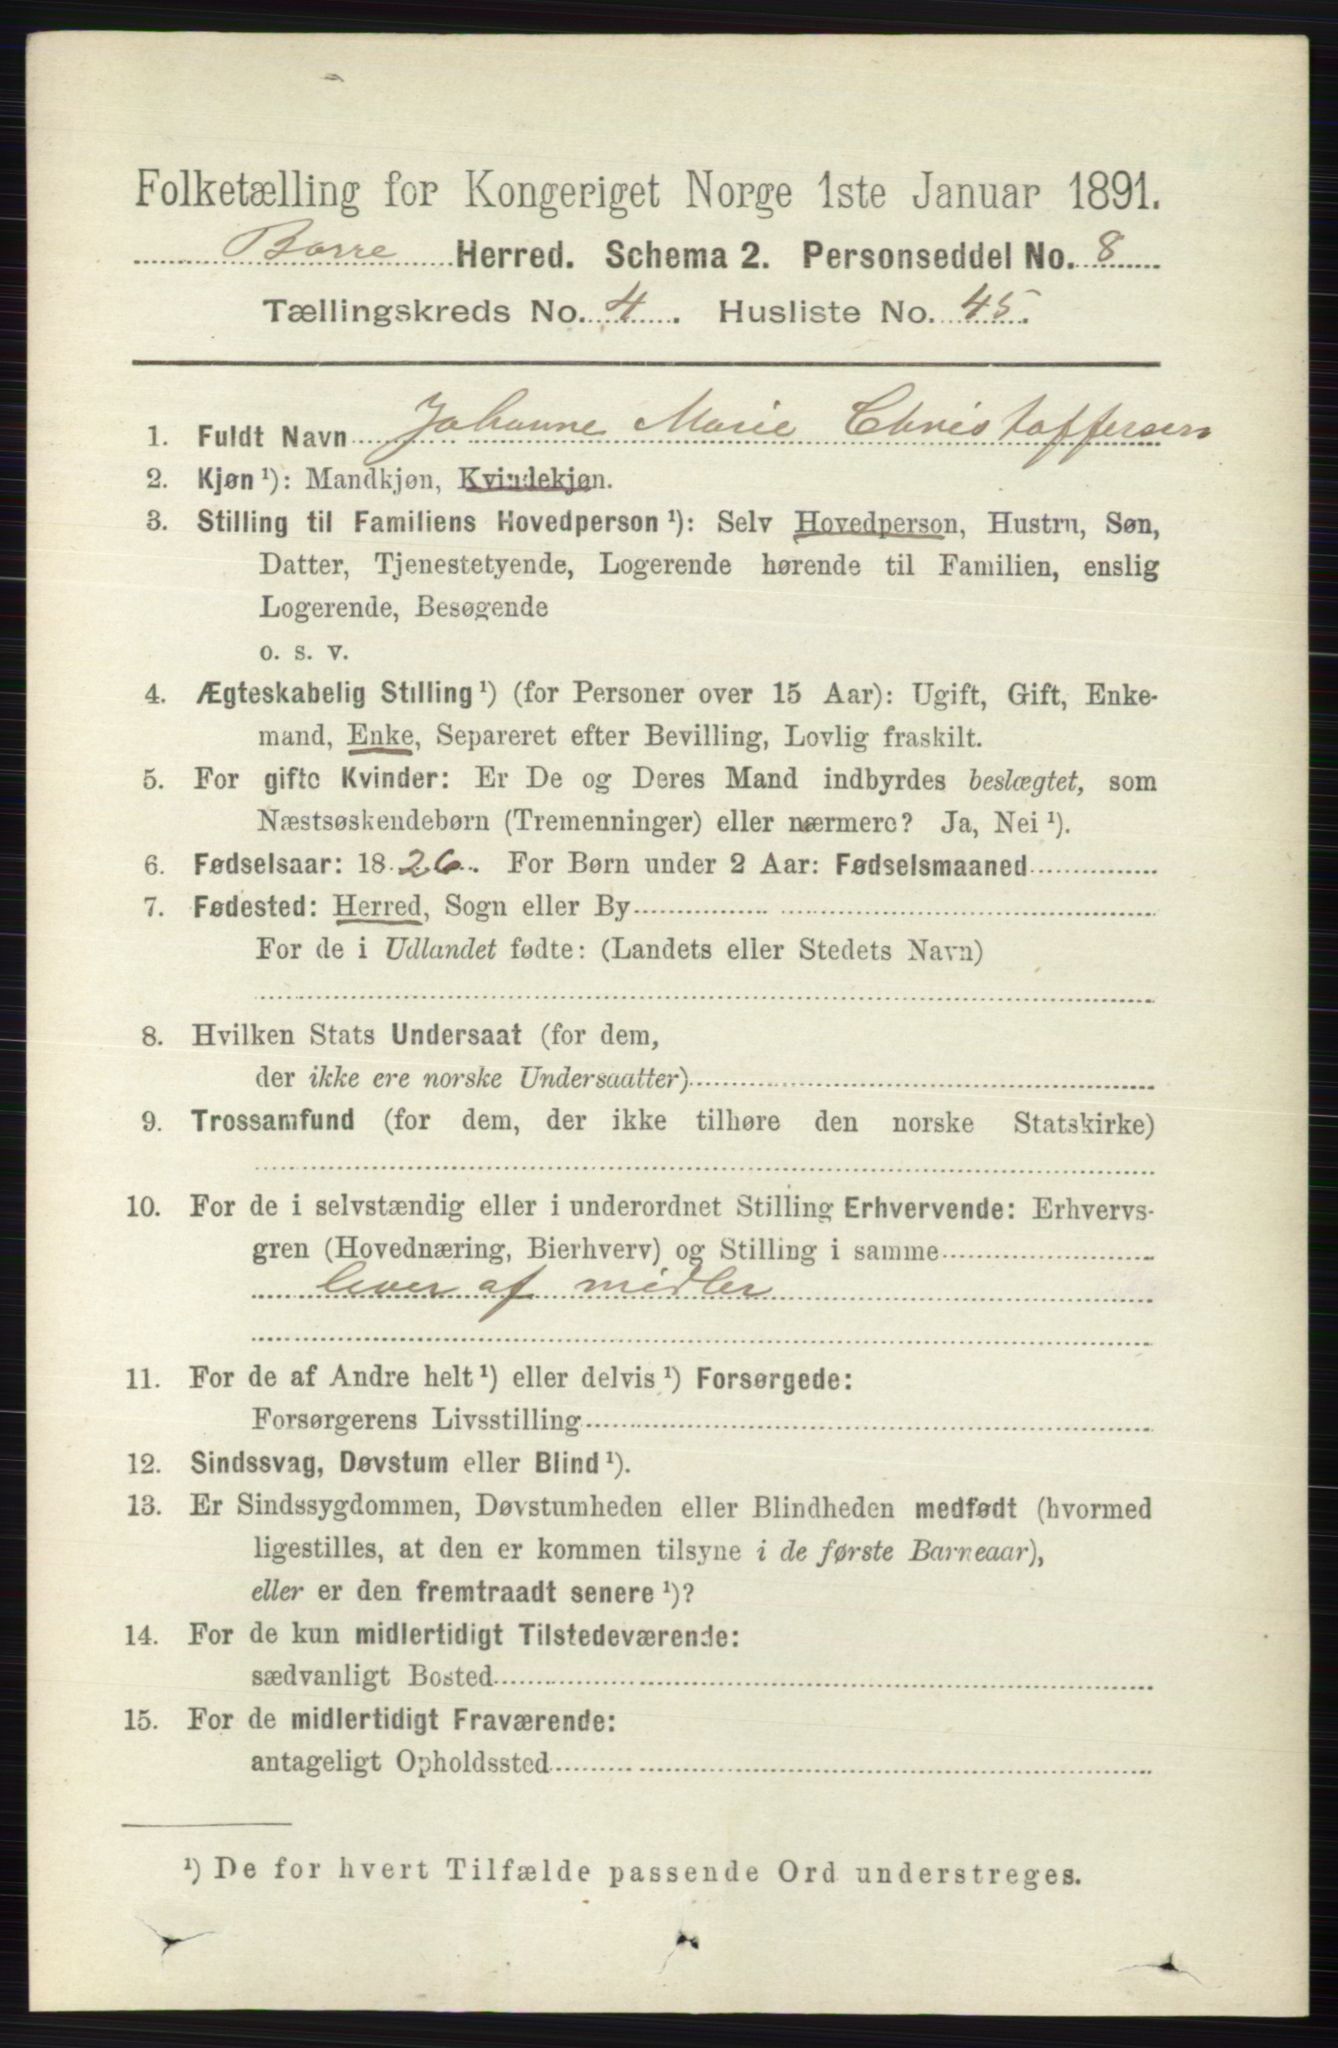 Folketælling for Kongeriget Norge 1ste Januar 1891.
Borre Herred. Schema 2. Personseddel No. 8
Tællingskreds No. 4. Husliste No. 45.
1. Fuldt Navn Johanne Marie Christoffersen
2. Kjøn ¹): Mandkjøn, Kvindekjøn.
3. Stilling til Familiens Hovedperson ¹): Selv Hovedperson, Hustru, Søn,
Datter, Tjenestetyende, Logerende hørende til Familien, enslig
Logerende, Besøgende
o. s. v.
4. Ægteskabelig Stilling ¹) (for Personer over 15 Aar): Ugift, Gift, Enke-
mand, Enke, Separeret efter Bevilling, Lovlig fraskilt.
5. For gifte Kvinder: Er De og Deres Mand indbyrdes beslægtet, som
Næstsøskendebørn (Tremenninger) eller nærmere? Ja, Nei ¹).
6. Fødselsaar: 1826. For Børn under 2 Aar: Fødselsmaaned
7. Fødested: Herred, Sogn eller By
For de i Udlandet fødte: (Landets eller Stedets Navn)
8. Hvilken Stats Undersaat (for dem,
der ikke ere norske Undersaatter)
9. Trossamfund (for dem, der ikke tilhøre den norske Statskirke)
10. For de i selvstændig eller i underordnet Stilling Erhvervende: Erhvervs-
gren (Hovednæring, Bierhverv) og Stilling i samme
lever af midler
11. For de af Andre helt ¹) eller delvis ¹) Forsørgede:
Forsørgerens Livsstilling
12. Sindssvag, Døvstum eller Blind ¹).
13. Er Sindssygdommen, Døvstumheden eller Blindheden medfødt (hvormed
ligestilles, at den er kommen tilsyne i de første Barneaar),
eller er den fremtraadt senere ¹)?
14. For de kun midlertidigt Tilstedeværende:
sædvanligt Bosted
15. For de midlertidigt Fraværende:
antageligt Opholdssted
¹) De for hvert Tilfælde passende Ord understreges.